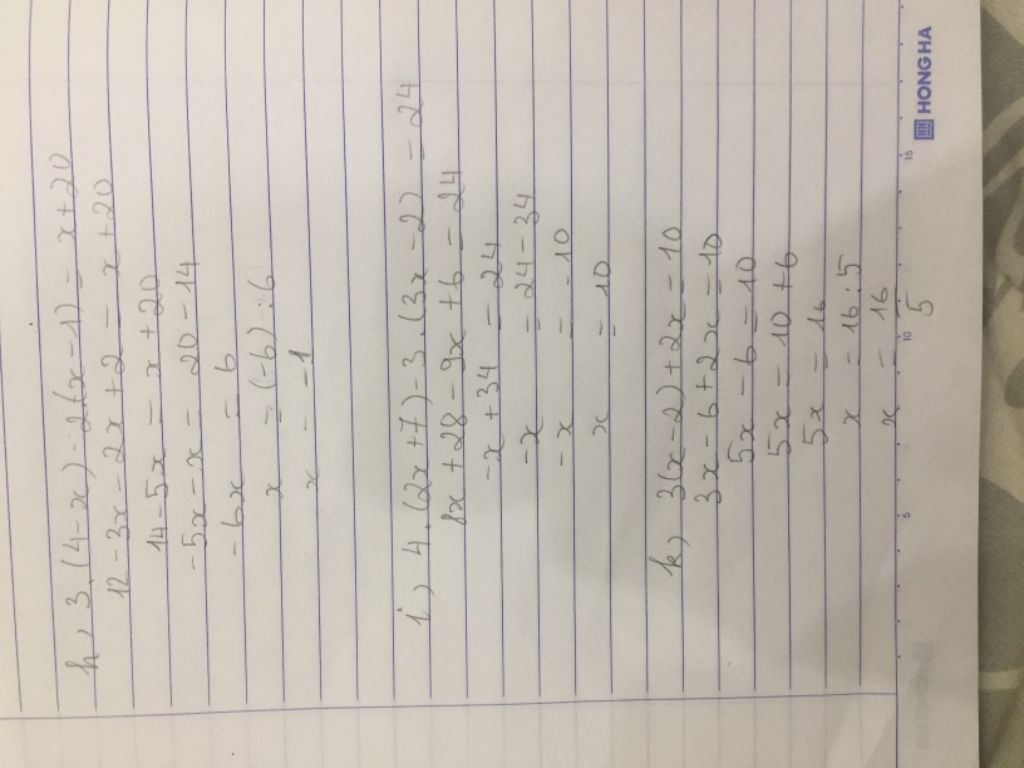 h, 3.(4-x)-2(x-1) = x+20
12-3x-2x+2 = x+20
14-5x = x+20
-5x-x = 20-14
-6x = 6
x = (-6):6
x = -1
i, 4.(2x+7)-3.(3x-2) = 24
8x+28-9x+6 = 24
-x+34 = 24
-x = 24-34
-x = -10
x = 10
k, 3(x-2)+2x = 10
3x-6+2x = 10
5x-6 = 10
5x = 10+6
5x = 16
x = 16:5
x = 16
5
5
10
15
HONG HA